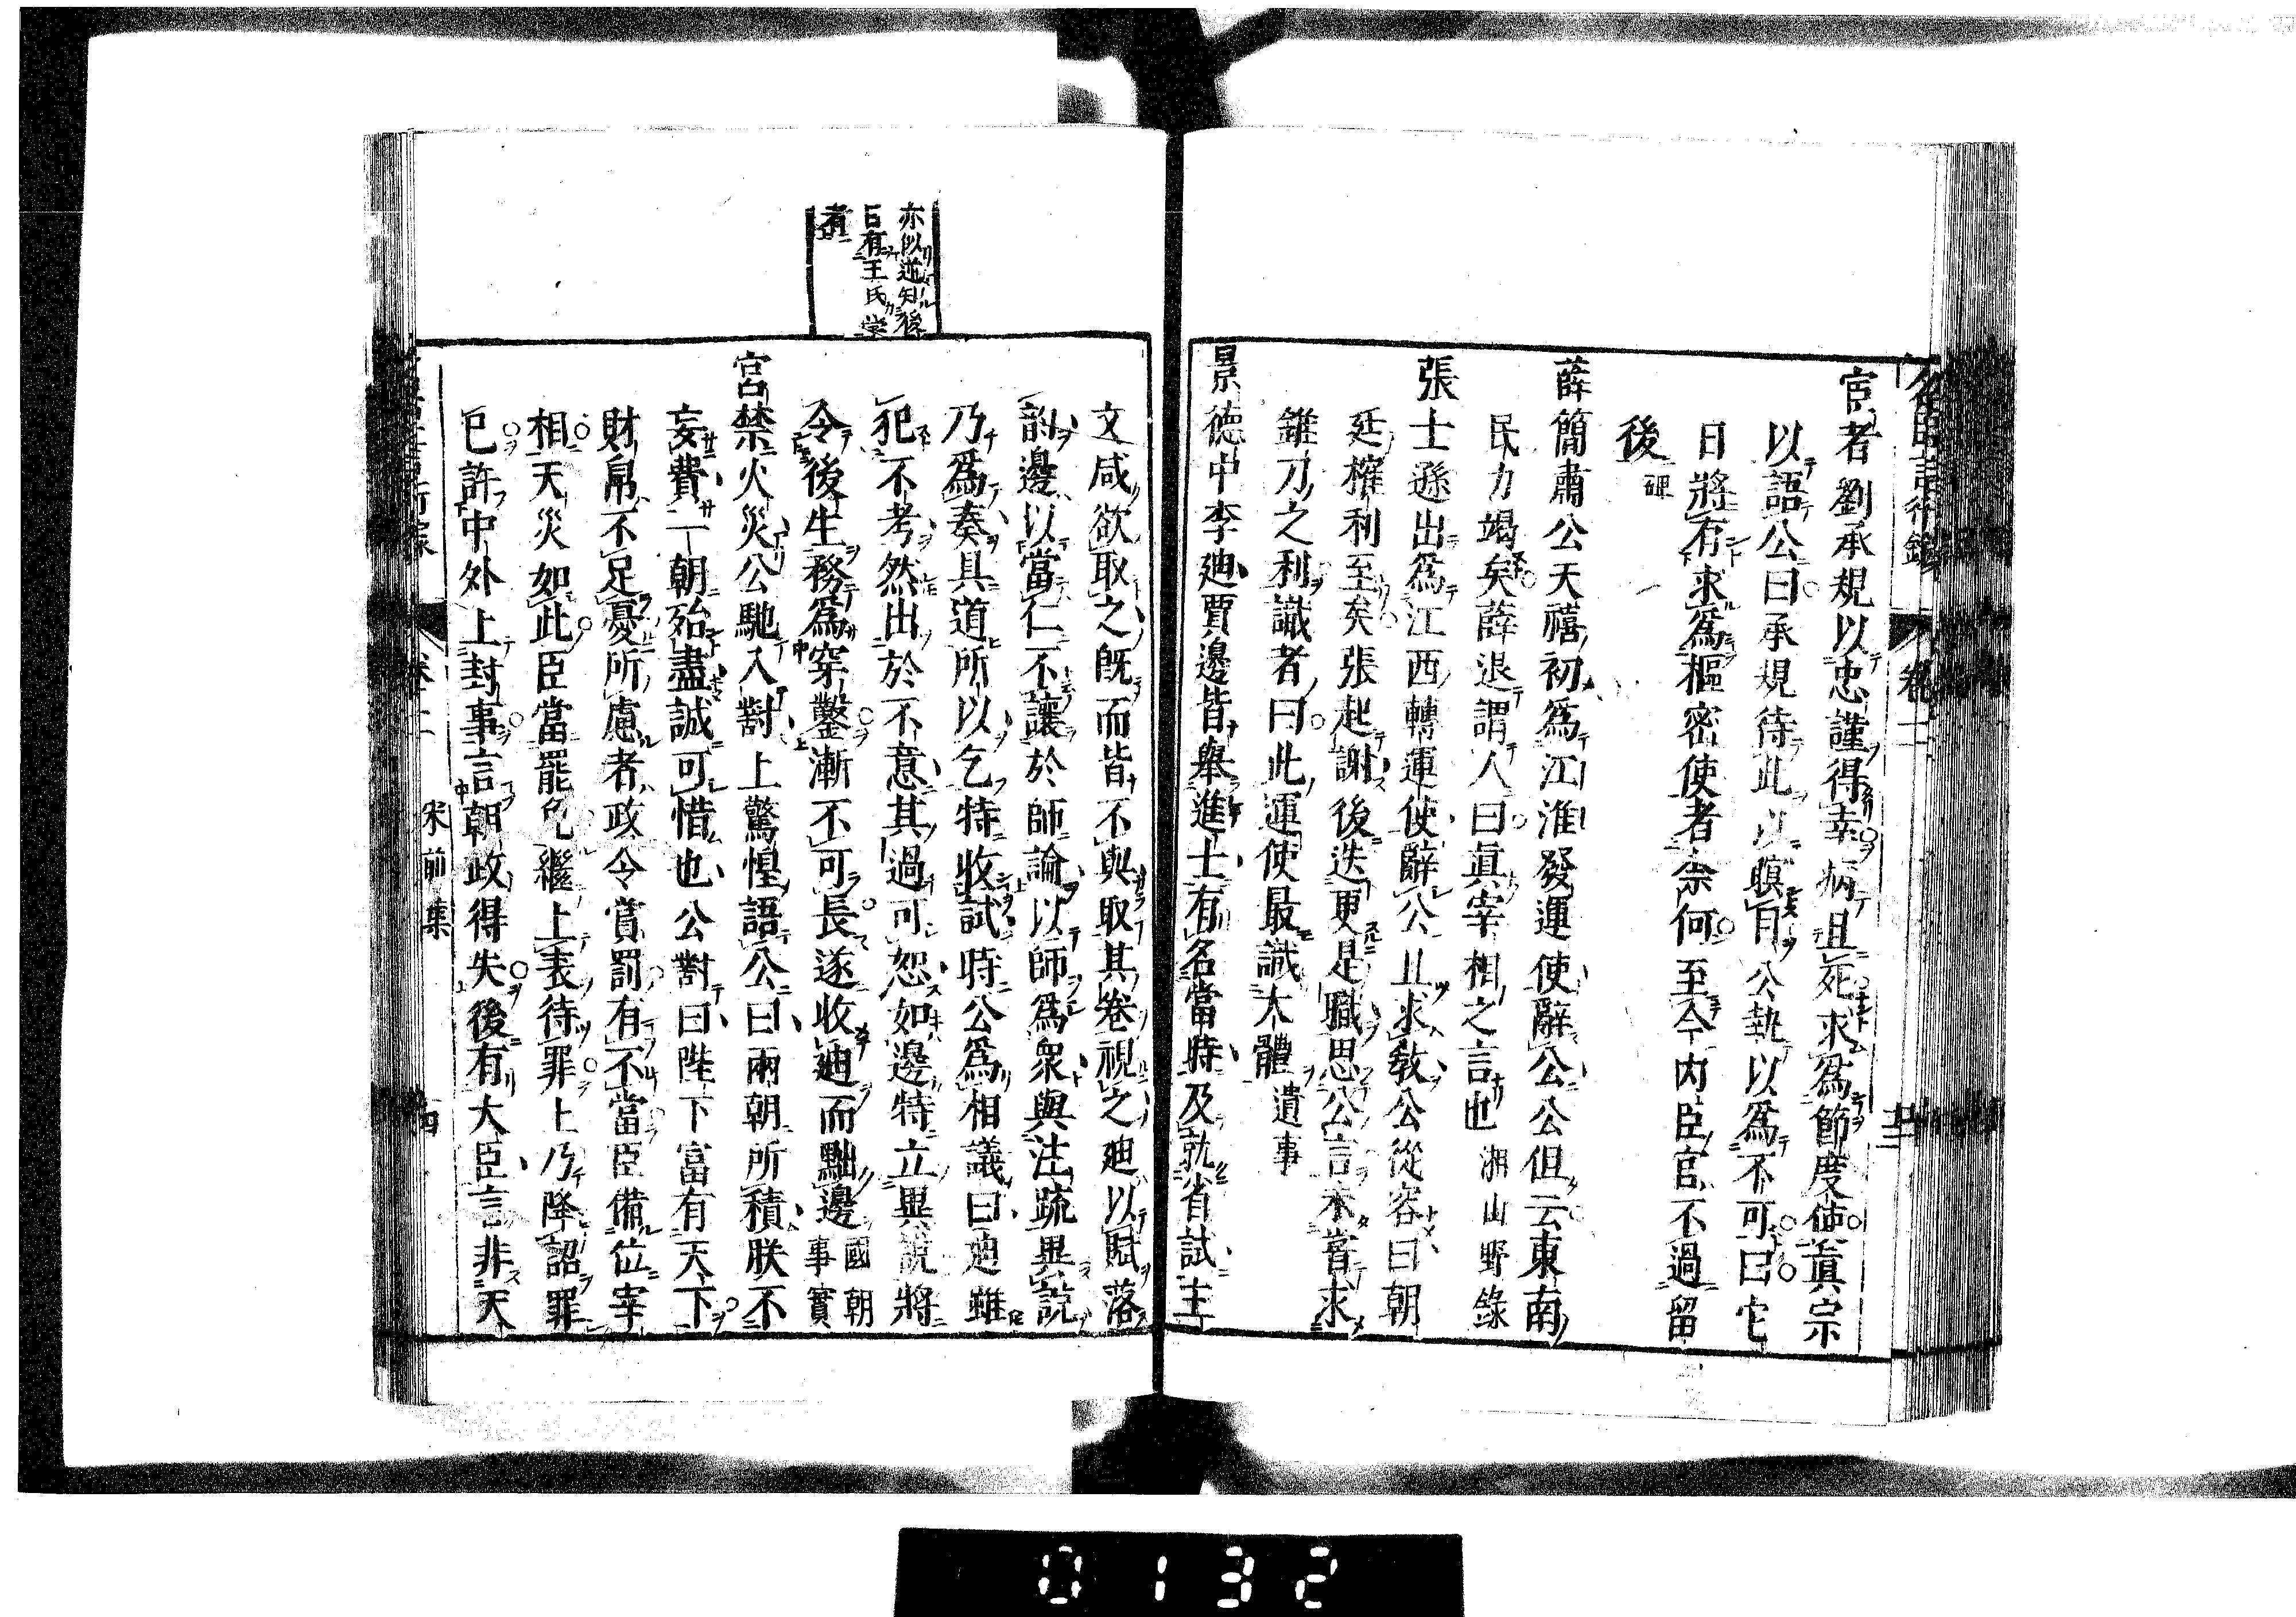 名臣言行錄
卷二
宦者劉承規以忠謹得幸病且死求爲節度使眞宗
以語公曰承規待此以瞑目公執以爲不可曰它
日將有求爲樞密使者奈何至今內臣官不過留
後 碑
薛簡肅公天禧初爲江淮發運使辭公公但云東南
民力竭矣薛退謂人曰眞宰相之言也 湘山野錄
張士遜出爲江西轉運使辭公且求敎公從容曰朝
廷榷利至矣張起謝後迭更是職思公言未嘗求
錐刀之利識者曰此運使最識大體 遺事
景德中李廸賈邊皆舉進士有名當時及就省試主
亦似逆知後
日有王氏學
者
文咸欲取之旣而皆不與取其卷視之廸以賦落
韵邊以當仁不讓於師論以師爲衆與注疏異說
乃爲奏具道所以乞特收試時公爲相議曰廸雖
犯不考然出於不意其過可恕如邊特立異說將
令後生務爲穿鑿漸不可長遂收廸而黜邊 國朝事實
宮禁火災公馳入對上驚惶語公曰兩朝所積朕不
妄費一朝殆盡誠可惜也公對曰陛下富有天下
財帛不足憂所慮者政令賞罰有不當臣備位宰
相天災如此臣當罷免繼上表待罪上乃降詔罪
已許中外上封事言朝政得失後有大臣言非天
卷二
宋前集
0132